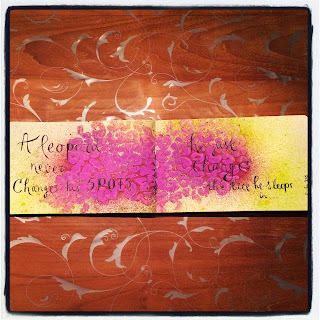 A leopard
never
Changes his SPOTS
he just
Changes
the tree he sleeps
in....